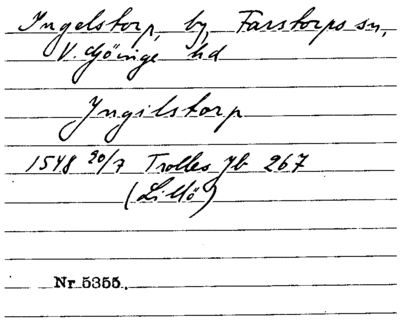 Ingelstorp, by, Farstorps sn,
V. Göinge hd
Yngilstorp
1548 20/7 Trolles Jb 267
(Lillö)
Nr 5355.